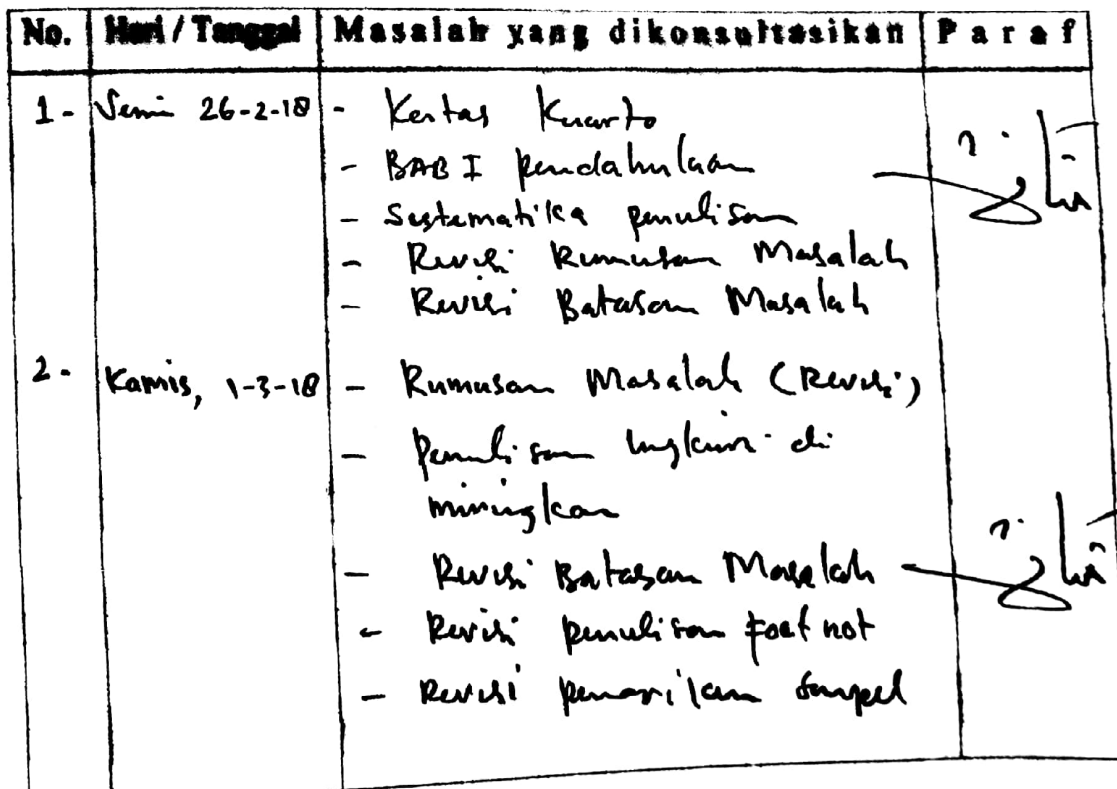 No. Hari / Tanggal Masalah yang dikonsultasikan Paraf
1 - Senin 26-2-18 - Kertas Kuarto
- BAB I pendahuluan
- Sistematika penulisan
- Revisi Rumusan Masalah
- Revisi Batasan Masalah
2 - Kamis, 1-3-18 - Rumusan Masalah (Revisi)
- Penulisan di
miringkan
- Revisi Batasan Masalah
- Revisi penulisan foot not
- Revisi penarikan sampel